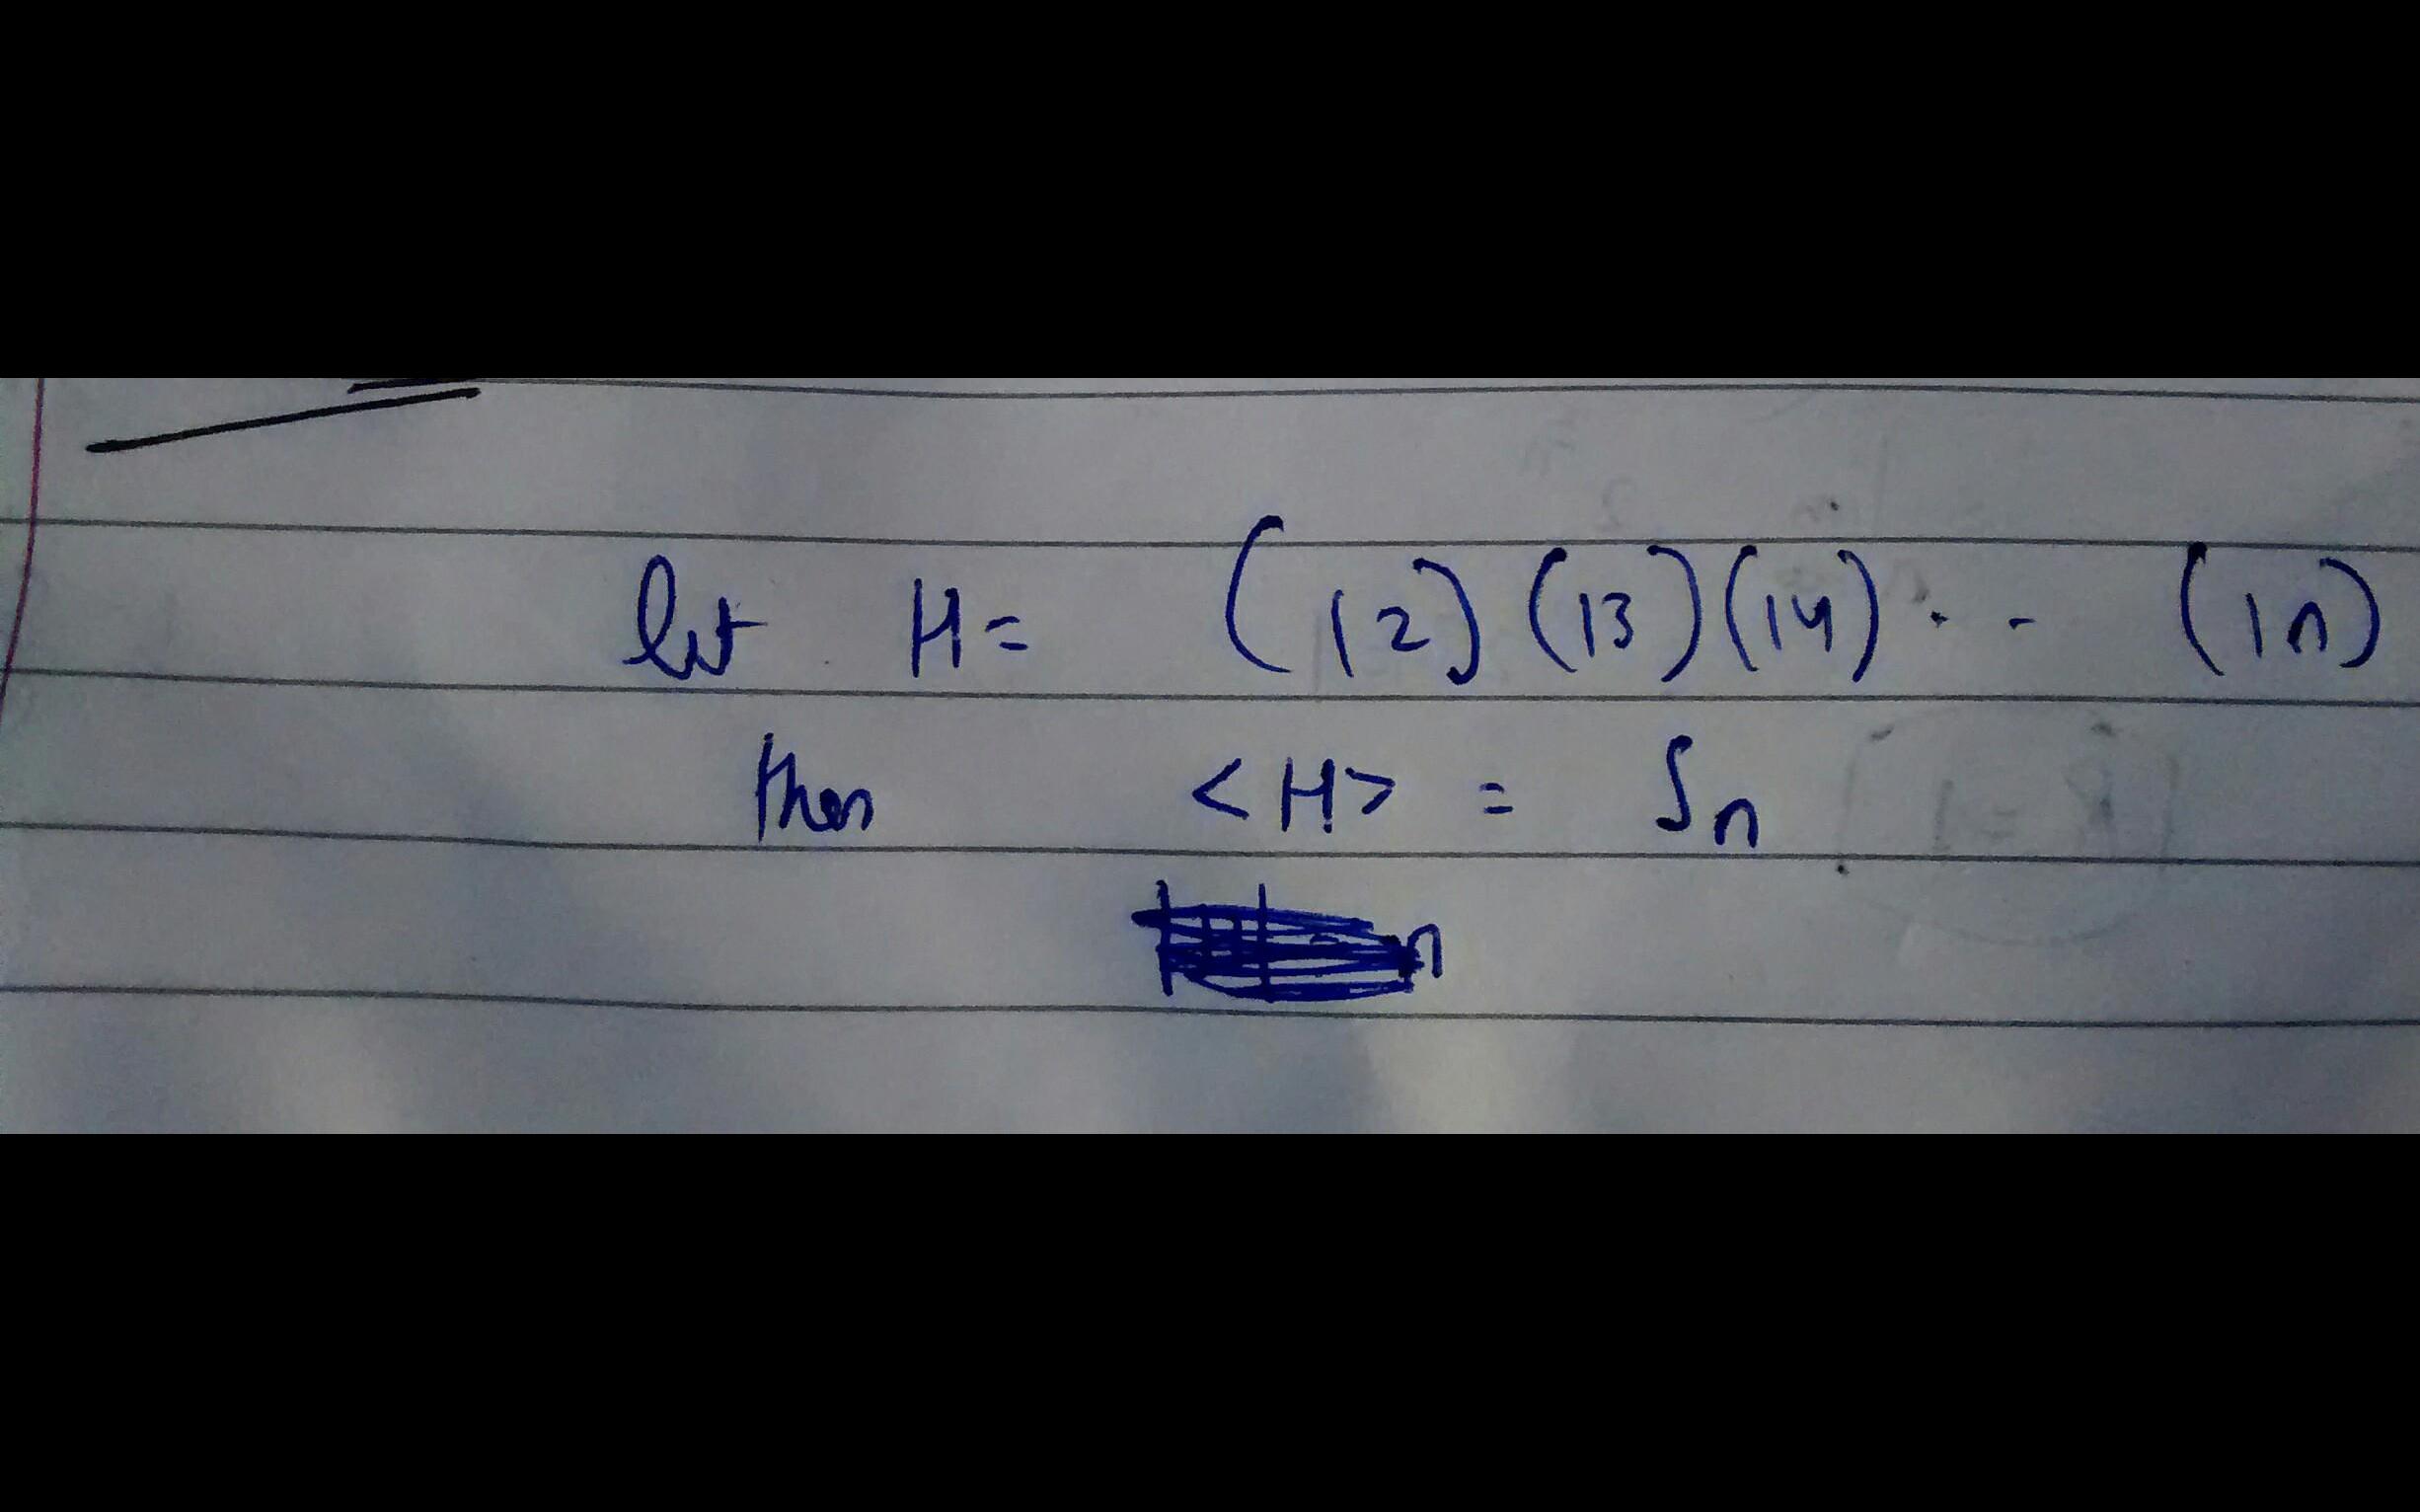 let H= (12)(13)(14).. (1n)
then <H> = Sn
n